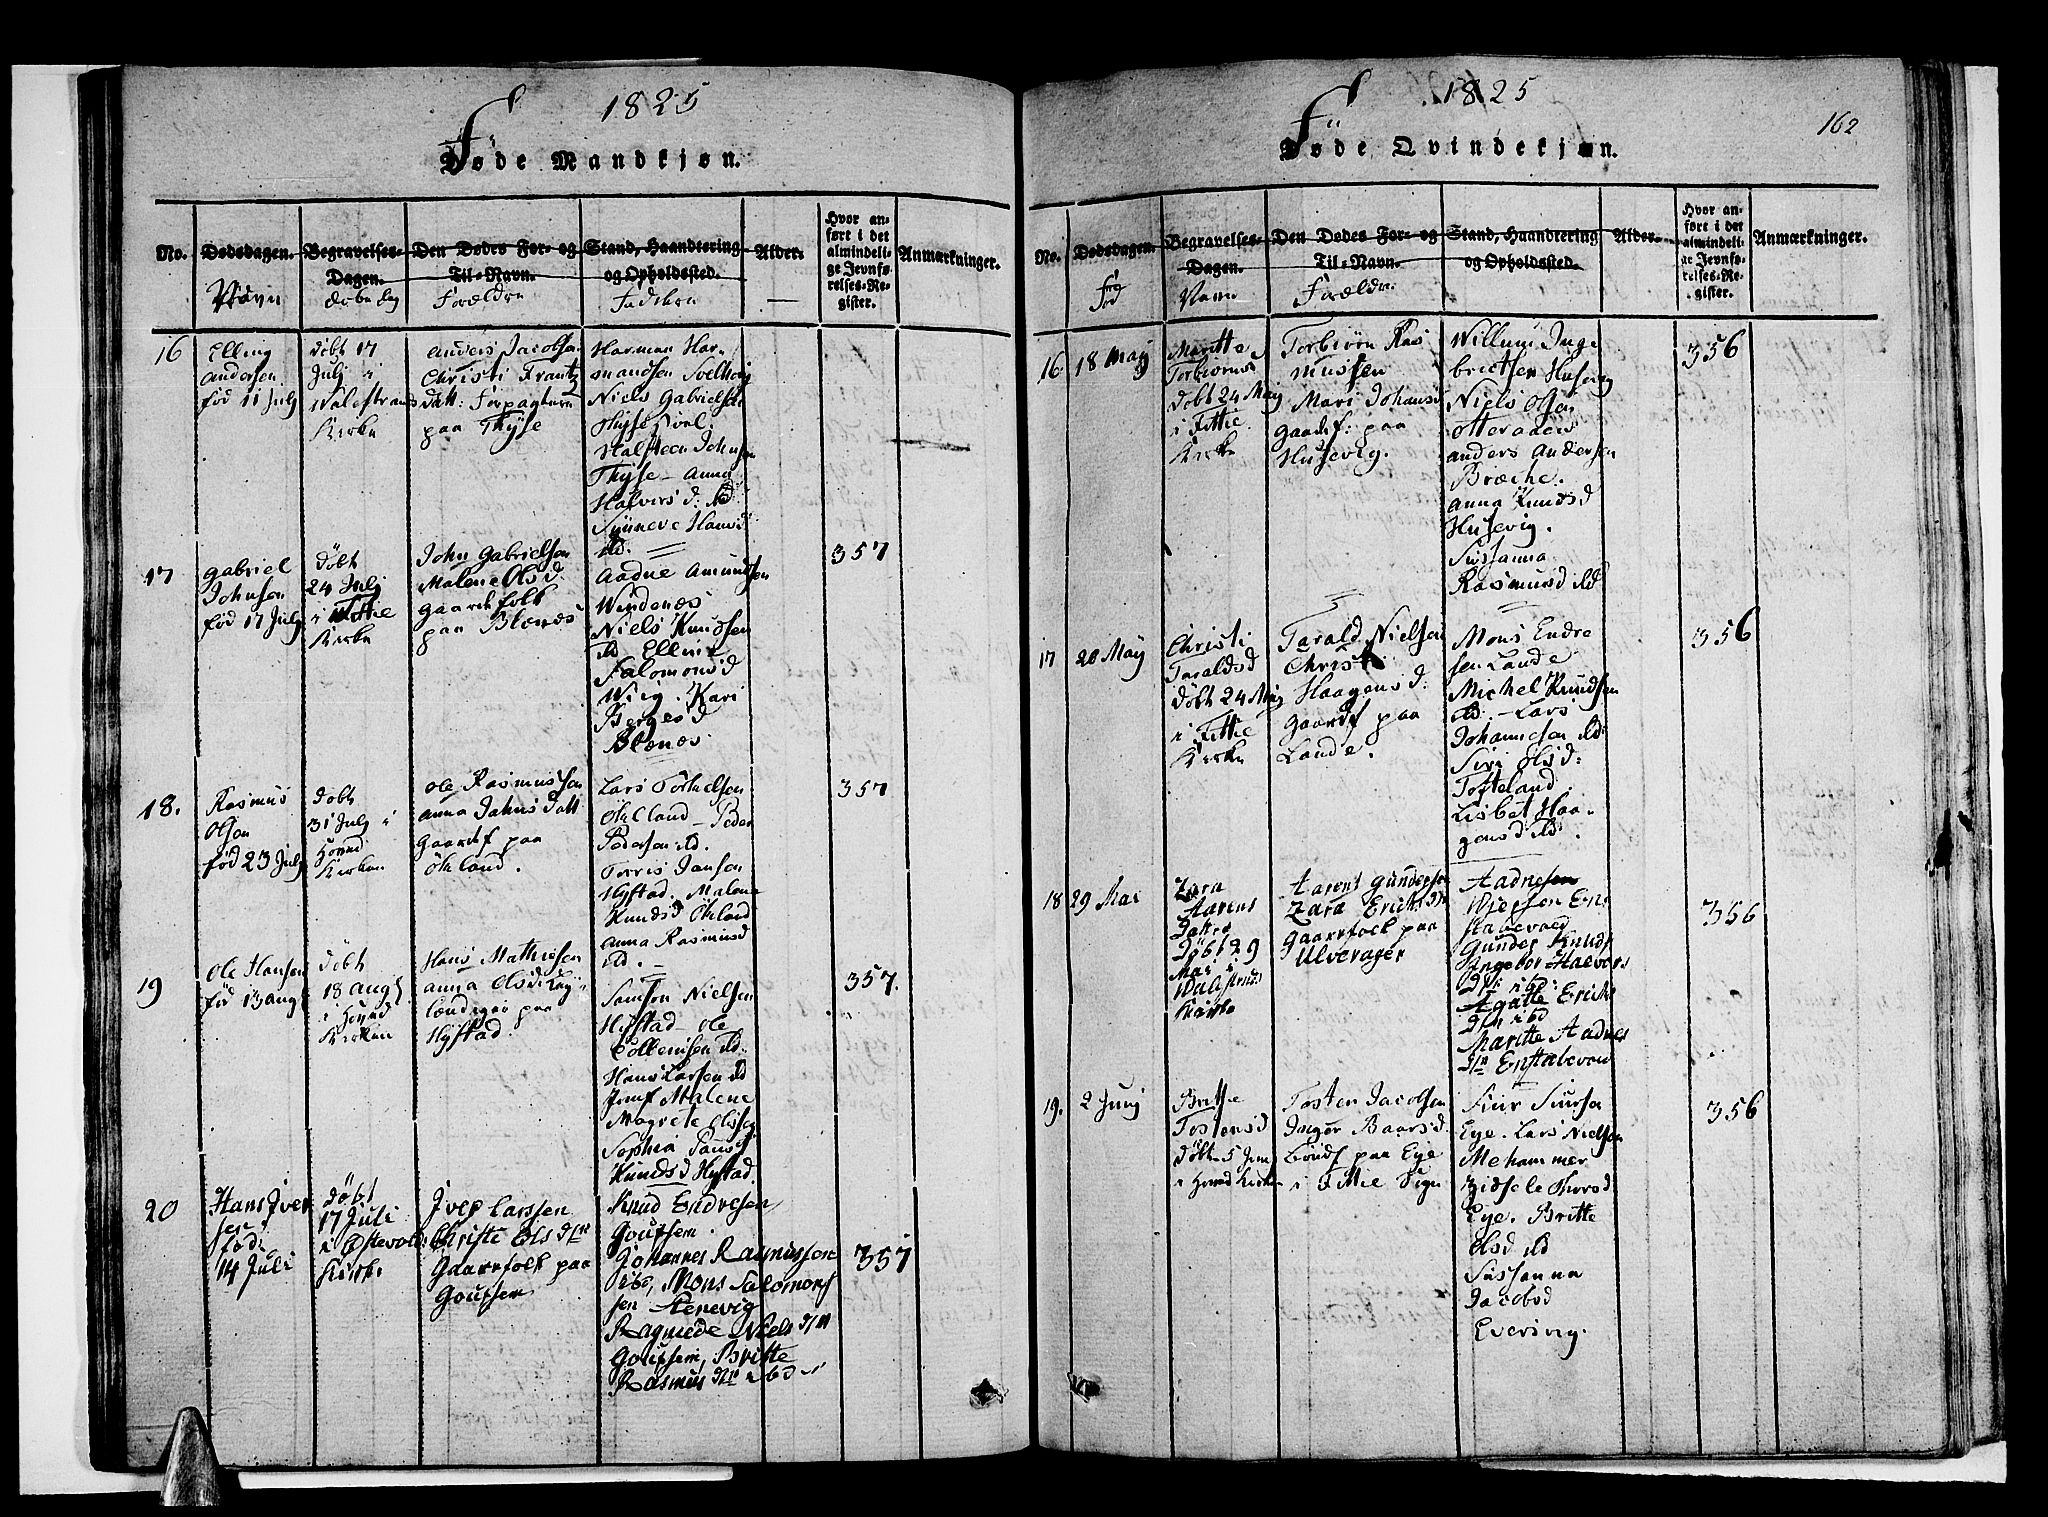 1825
Føde Mandkjøn.
No.
Dødsdagen.
Navn
Begravelses-
Dagen.
Døbe dag
Den Dødes For- og
Til-Navn.
Forældre
Stand, Haandtering
og Opholdssted.
Faddere
Alder.
Hvor an-
ført i det
almindeli-
ge Jevnfø-
relses-Re-
gister.
Anmærkninger.
16
Elling
Andersen
fød 11 July
døbt 17
Julj i
Walestrands
Kirke
Anders Jacobsen
Christi Frantz
datt: Forpagtere
paa Thyse
Harman Har-
mandsen
Niels Gabrielsen
Halsteen Johnsen
Thyse - Anna
Halvorsd: ibd
Synneve Hansd
ibd.
17
Gabriel
Johnsen
fød 17 July
Døbt
24 July
i Fittie
Kirke
John Gabrielsen
Malene Olsd:
gaardfolk
paa Blænes
Aadne Amundsen
Windenes
Niels Knudsen
ibd Ellin
Salomonsd
Wiig. Kari
Børgesd
Blænes.
357
18.
Rasmus
Olsen
fød 23 July
døbt
31 July i
Kirken
Ole Rasmussen
Anna Jahns datt
gaardf paa
Økland.
Lars Torkelsen
Økland - Peder
Pedersen ibd.
Torris Jansen
Hystad. Malene
Knudsd Økland
Anna Rasmusd
ibd.
357
19
Ole Hansen
fød 13 aug
døbt
18 aug
i
Kirken
Hans Mathiesen
Anna Olsd
paa
Hystad.
Samson Nielsen
Hystad - Ole
ibd.
Hans Larsen ibd
Malene
Magrete
Sophia
Knudsd Hystad.
357.
20
Hans Iver
sen
fød.
14 Juli
Døbt
17 Juli
i Østevold
Kirke
Iver Larssen
Christe Ols dtr
Gaarfolck paa
Knud Endresen
Johannes Rasmussen
ibd, Mons Salomons
sen Stenevig
Ragnede Niels dtr
Britte
Rasmus dtr ibd
357
1825
162
Føde Qvindekjøn.
No.
Dødsdagen.
fød
Begravelses-
Dagen.
Navn
Den Dødes For- og
Til-Navn.
Forældre
Stand, Haandtering
og Opholdssted.
Alder.
Hvor an-
ført i det
almindeli-
ge Jevnfø-
relses-Re-
gister.
Anmærkninger.
16.
18 May
Maritte
Torbiørnsd
døbt 24 May
i Fittie
Kirke
Torbiörn Ras
mussen
Mari Johansd
gaardf: paa
Husevig.
Willum Inge
brictsen Husevig
Niels Olsen
Otteraaen
Anders Andersen
Bræcke.
Anna Knudsd
Husevig.
Sussanna
Rasmusd ibd
356
17
20 May
Christi
Taraldsd
døbt 24 May
i Fittie
Kirke
Tarald Nielsen
Christi
Haagensd:
gaardf paa
Lande.
Mons Endre
sen Lande
Michel Knudsen
ibd. - Lars
Johannesen ibd.
Siri Olsd:
Tofteland.
Lisbet Haa-
gensd ibd.
356
18
29 Mai
Zara
Aarens
Datter
Døbt 29
Mai i
Walestrands
Kirke
Aarent Gundersen
Zara Erichs dtr
Gaarfolck paa
Ulverager
Aadnesen
Enstabevold
Gunder Knuds
Ingebor Halvors
dtr ibd:
Agatte Erichs
dtr ibd
Maritte Aadnes
dtr Enstabevold
356
19.
2 Junj
Britte
Tostensd
døbt 5 Junj
i Kirke
Tosten Jacobsen
Inger Baarsd.
bondf paa Eye
i Fittie Sogn
Siur Siursen
Eye. Lars Nielsen
Mehammer
Zidsele
Eye. Britte
Olsd ibd
Sussanna
Jacobsd
Evering.
356